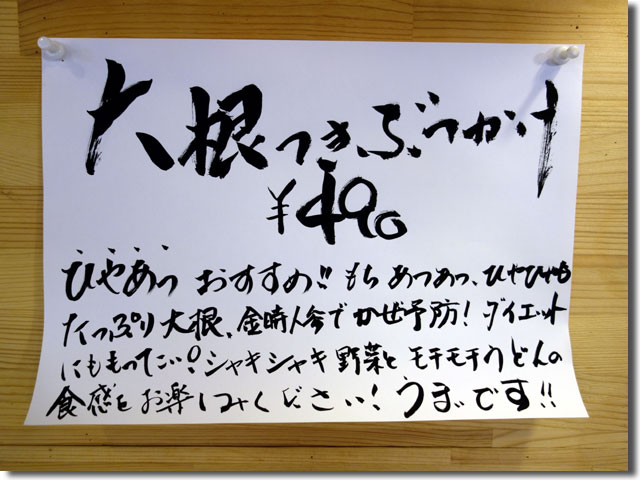 大根つきぶっかけ
¥490
ひやあつ おすすめ!! もち あつあつ、ひやひやも
たっぷり大根、金時人参でかぜ予防! ダイエット
にももってこい! シャキシャキ野菜と モチモチうどんの
食感を お楽しみください! うまいです!!